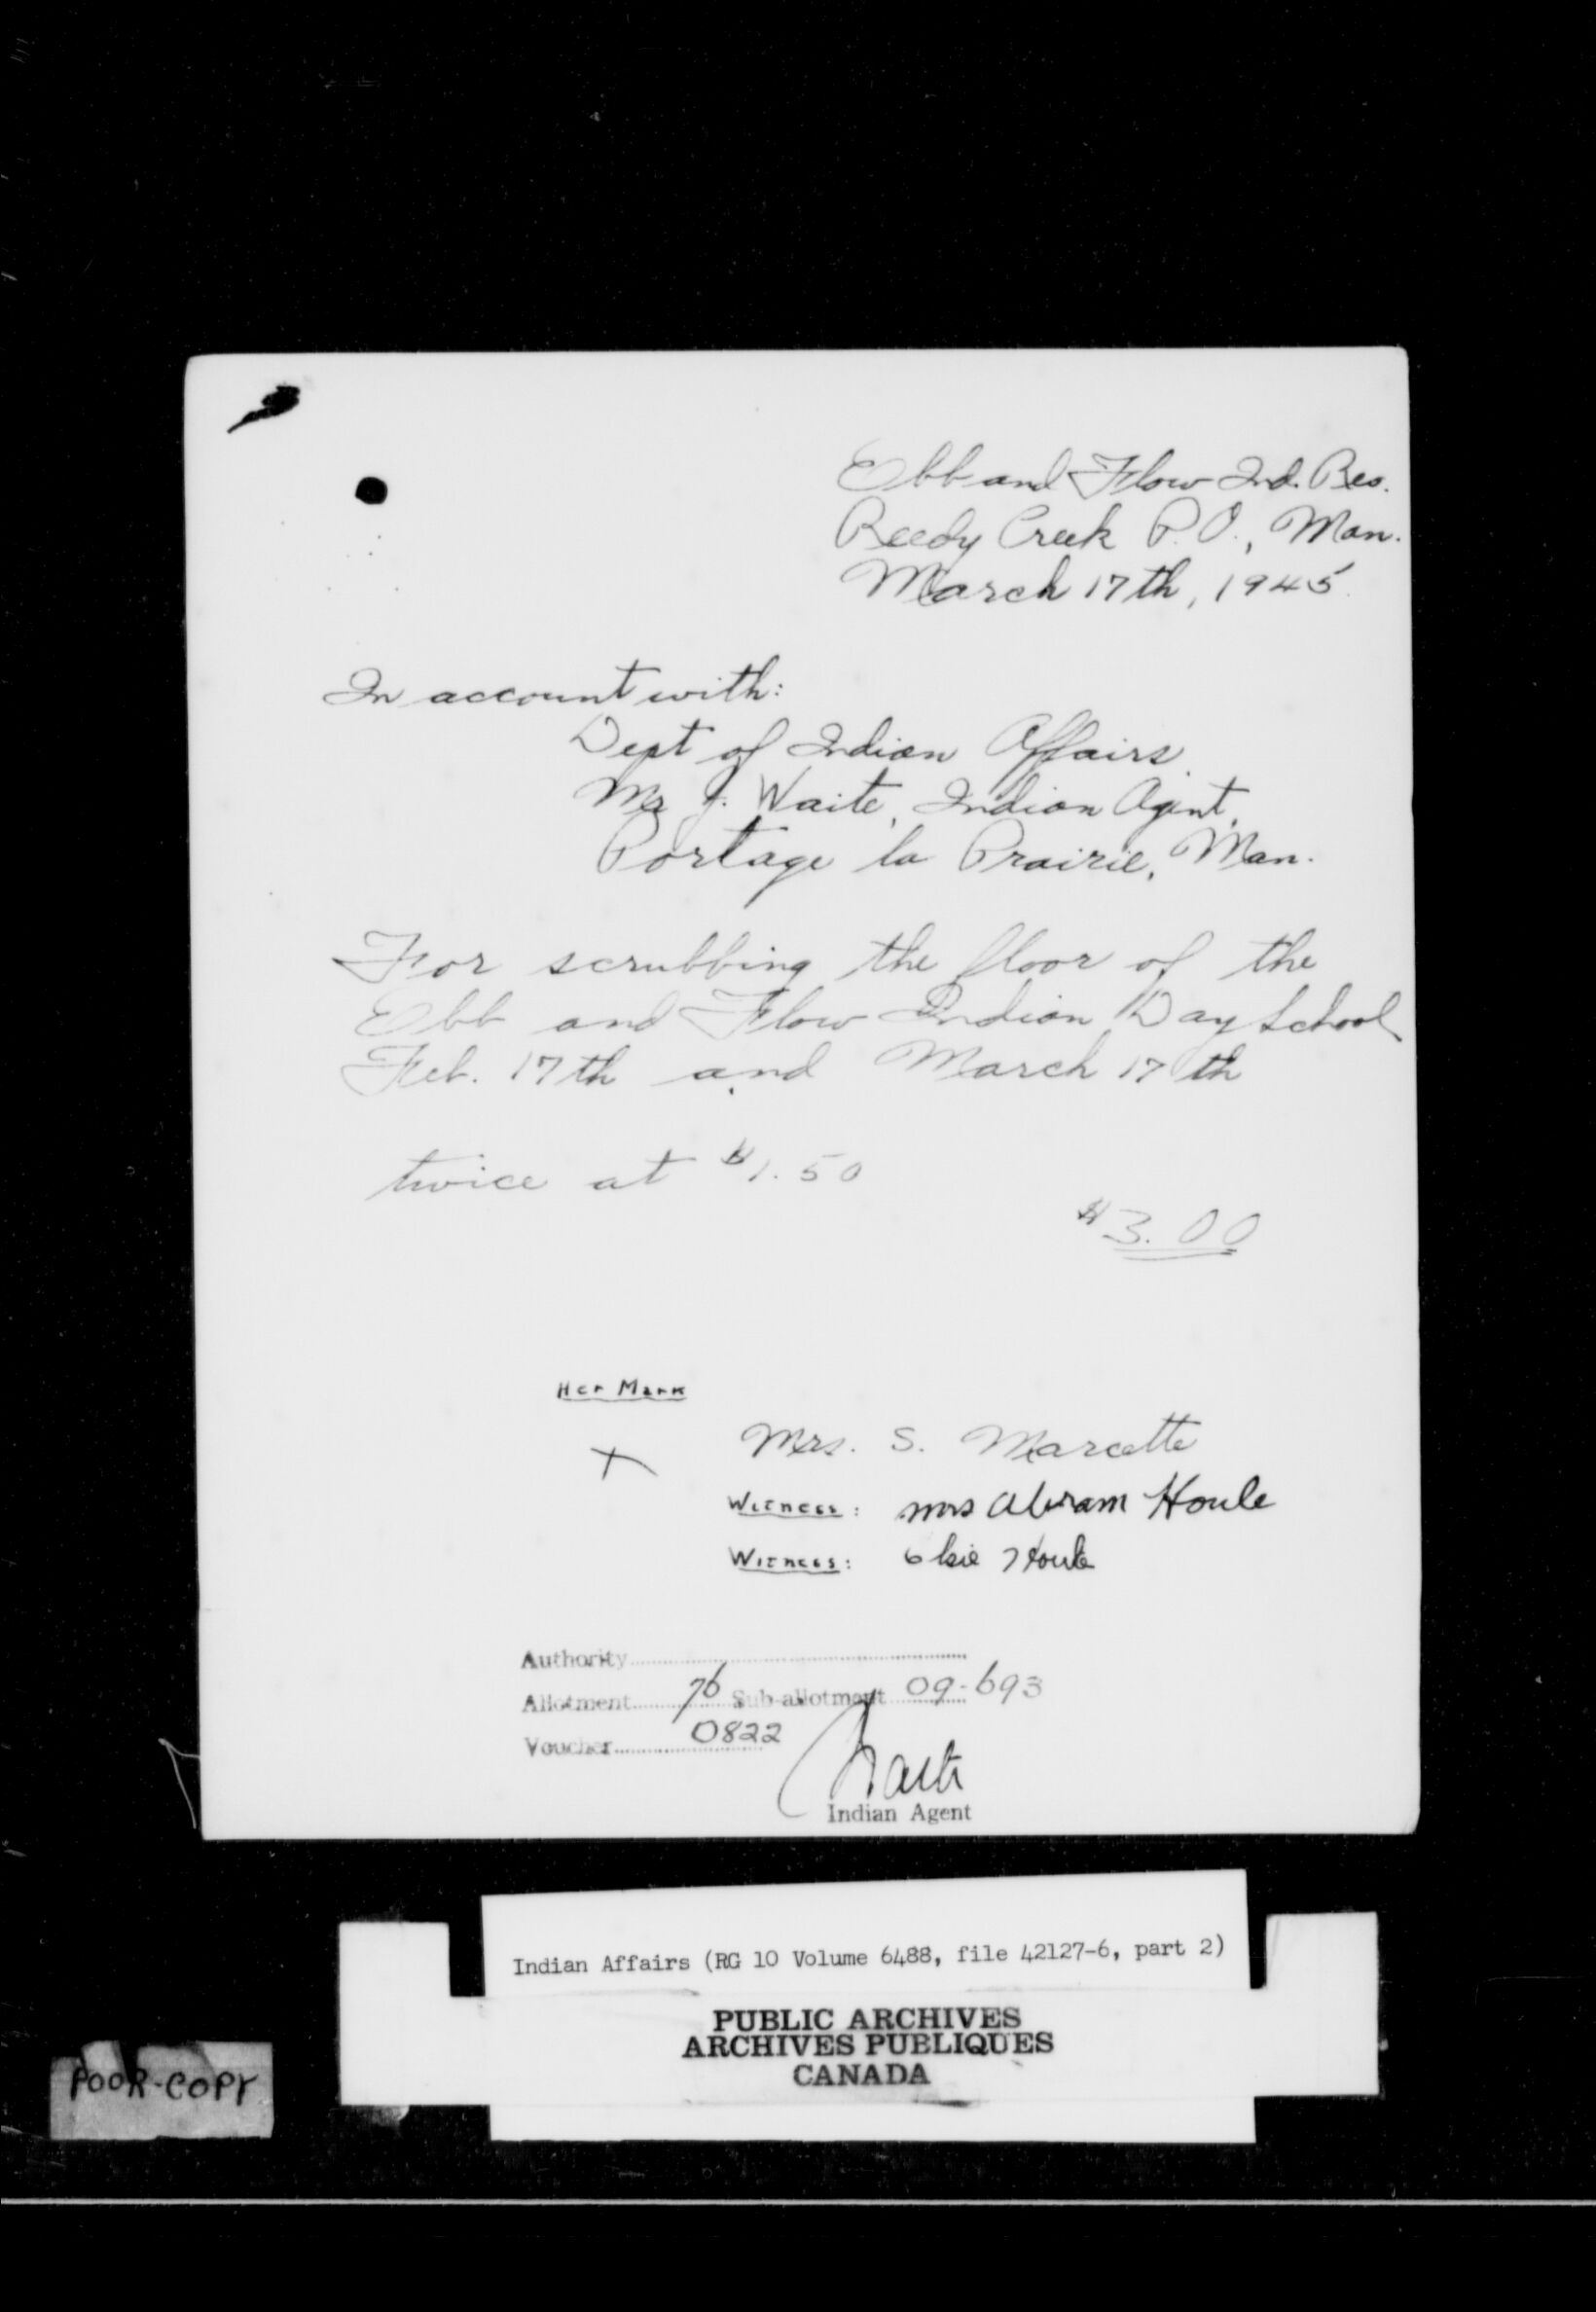 Ebb and Flow Ind. Res.
Reedy Creek P.O., Man.
March 17th, 1945.
In account with:
Dept of Indian Affairs
Mr J. Waite, Indian Agent,
Portage la Prairie, Man.
For scrubbing the floor of the
Ebb and Flow Indian Day School
Feb. 17th and March 17th
twice at $1.50
$3.00
Her Mark
X Mrs. S. Marcette
Witness: Mrs Abram Houle
Witness: Elsie Houle
Authority
Allotment 76 Sub-allotment 09-693
Voucher 0822
Waite
Indian Agent
Indian Affairs (RG 10 Volume 6488, file 42127-6, part 2)
PUBLIC ARCHIVES
ARCHIVES PUBLIQUES
CANADA
POOR-COPY